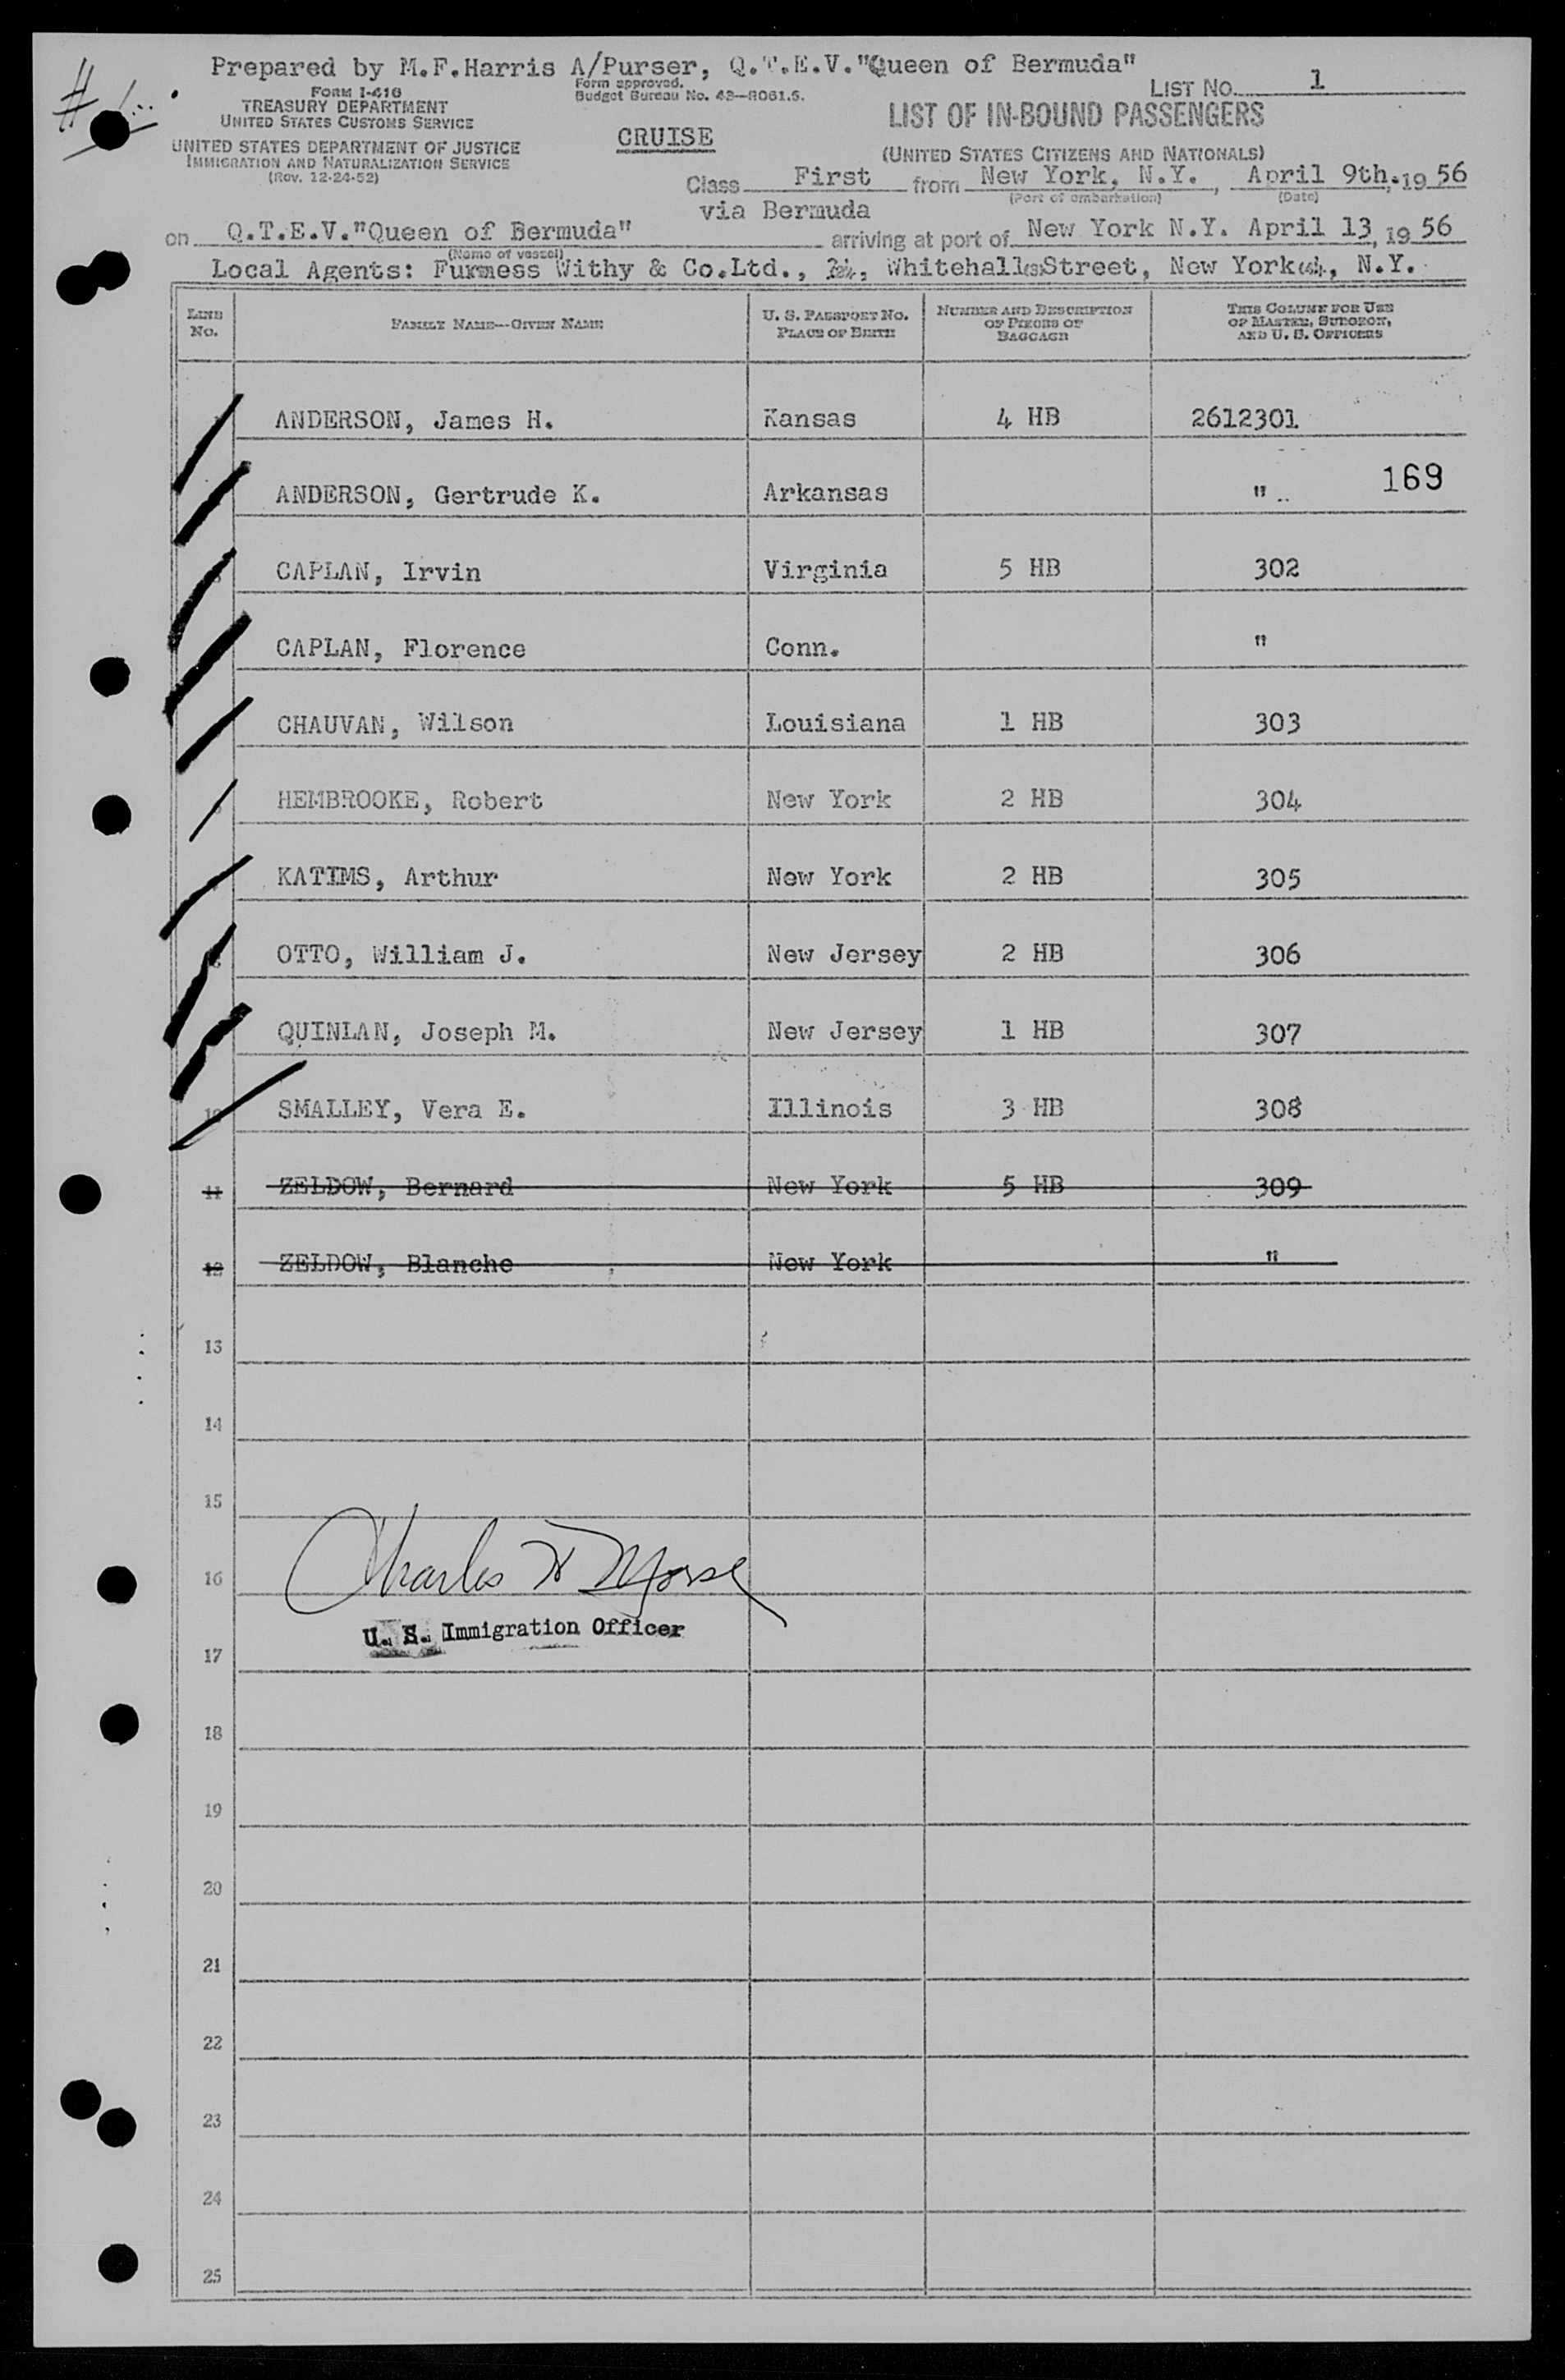 Prepared by M.F.Harris A/Purser, Q.T.E.V."Queen of Bermuda"
FORM I-418
TREASURY DEPARTMENT
UNITED STATES CUSTOMS SERVICE
UNITED STATES DEPARTMENT OF JUSTICE
IMMIGRATION AND NATURALIZATION SERVICE
(Rev. 12-24-52)
Form approved.
Budget Bureau No. 43-R061.5.
CRUISE
LIST NO. 1
LIST OF IN-BOUND PASSENGERS
(UNITED STATES CITIZENS AND NATIONALS)
Class First from New York, N.Y., April 9th, 1956
(Port of embarkation) (Date)
via Bermuda
on Q.T.E.V."Queen of Bermuda" arriving at port of New York N.Y. April 13, 1956
(Name of vessel)
Local Agents: Furness Withy & Co.Ltd., Whitehall Street, New York, N.Y.
LINE No. FAMILY NAME—GIVEN NAME U. S. PASSPORT NO. PLACE OF BIRTH NUMBER AND DESCRIPTION OF PIECES OF BAGGAGE THIS COLUMN FOR USE OF MASTER, SURGEON, AND U. S. OFFICERS
ANDERSON, James H. Kansas 4 HB 2612301
ANDERSON, Gertrude K. Arkansas " 169
CAPLAN, Irvin Virginia 5 HB 302
CAPLAN, Florence Conn. "
CHAUVAN, Wilson Louisiana 1 HB 303
HEMBROOKE, Robert New York 2 HB 304
KATIMS, Arthur New York 2 HB 305
OTTO, William J. New Jersey 2 HB 306
QUINLAN, Joseph M. New Jersey 1 HB 307
10 SMALLEY, Vera E. Illinois 3 HB 308
11 ZELDOW, Bernard New York 5 HB 309
12 ZELDOW, Blanche New York "
13
14
15
16
Charles H Morse
U. S. Immigration Officer
17
18
19
20
21
22
23
24
25